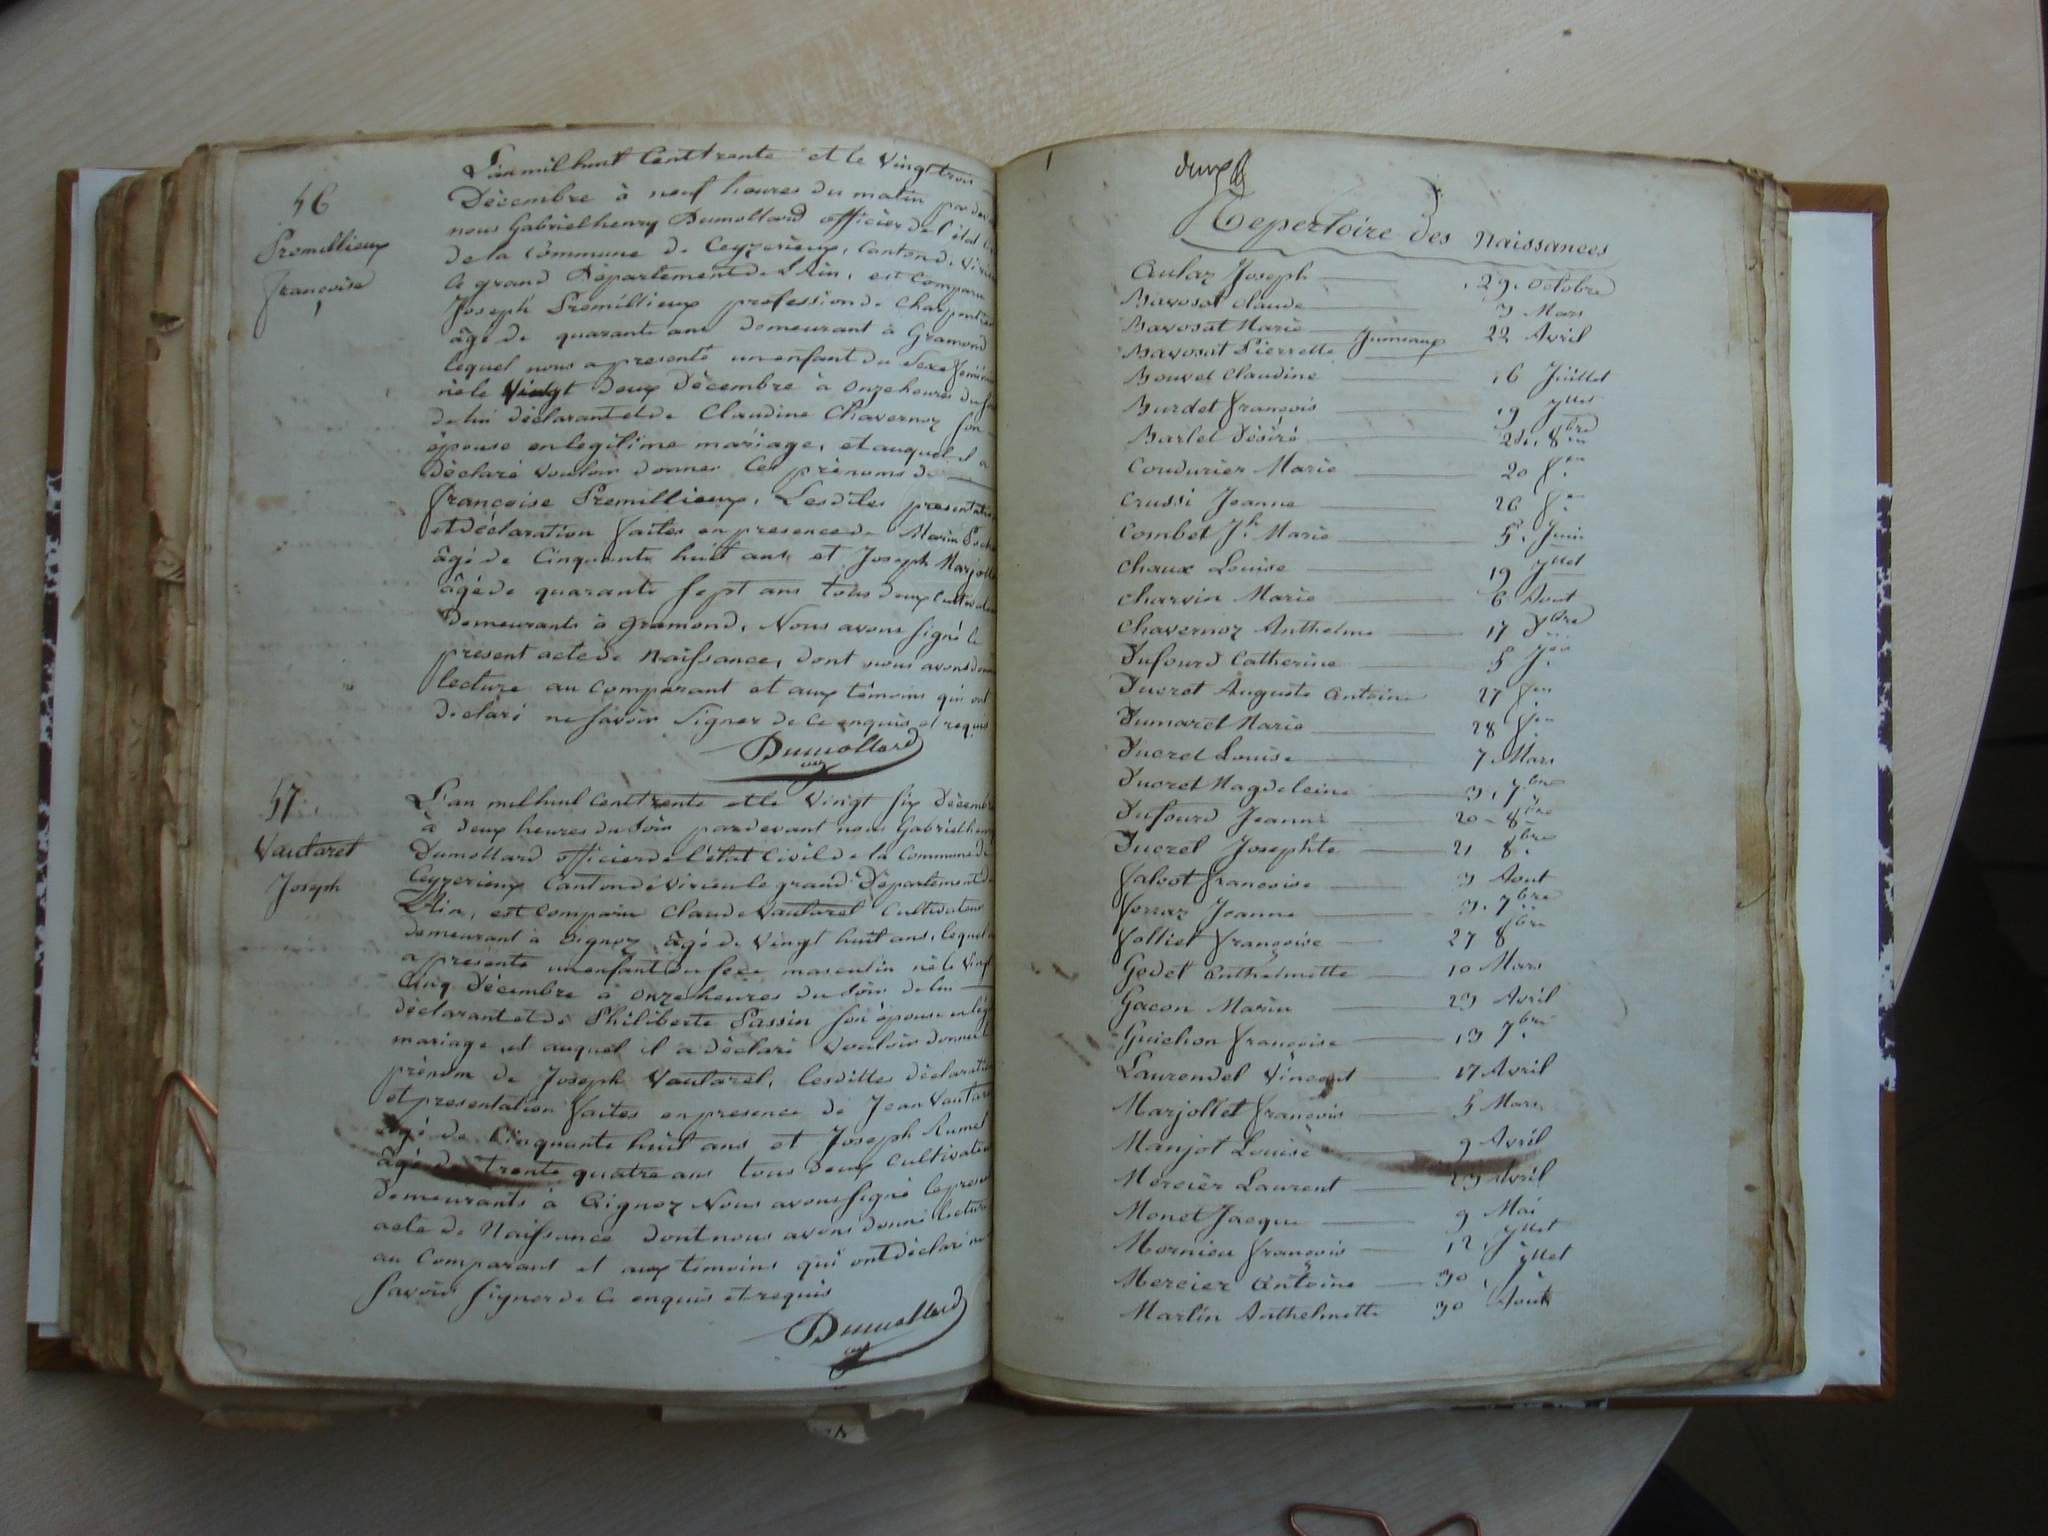 56
Premillieux
françoise
L'an mil huit Cent trente et le vingt trois
Décembre à neuf heures du matin par de
nous Gabriel henry Dumollard officier de l'état
de la Commune de Ceyzerieux, Canton de
le grand Département de l'Ain, est Comparu
Joseph Premillieux profession de Charpentier
âgé de quarante ans demeurant à Gramond
lequel nous a presenté un enfant du Sexe
né le Vingt deux Décembre à onze heures du
de lui déclarant et de Claudine Chavernoz son
épouse en legitime mariage, et auquel il a
déclaré vouloir donner les prénoms de
françoise Premillieux, Les dites
et déclaration faites en presence de Marin
âgé de Cinquante huit ans et Joseph Marjollet
âgé de quarante sept ans tous deux
Demeurants à gramond, Nous avons signé le
present acte de Naissance, dont nous avons
lecture au Comparant et aux témoins qui ont
declaré ne savoir signer de ce enquis et requis
Dumollard
57.
Vautaret
Joseph
L'an mil huit Cent trente et le Vingt six Décembre
à deux heures du soir pardevant nous Gabriel henry
Dumollard officier de l'état Civil de la Commune de
Ceyzerieux Canton de Virieu le grand Département de
L'Ain, est Comparu Claude Vautaret Cultivateur
demeurant à aignoz âgé de vingt huit ans, lequel
a presenté un enfant du sexe masculin né le Vingt
Cinq Décembre à onze heures du soir de lui
déclarant et de Philiberte Passin son épouse en
mariage, et auquel il a déclaré Vouloir donner le
prénom de Joseph Vautaret, lesdittes déclaration
et presentation faites en presence de Jean Vautaret
âgé de Cinquante huit ans et Joseph Rumet
âgé de trente quatre ans tous deux Cultivateurs
Demeurants à Aignoz Nous avons signé le present
acte de Naissance dont nous avons donné lecture
au Comparant et aux temoins qui ont déclaré ne
savoir signer de ce enquis et requis
Dumollard
Repertoire des Naissances
Aulaz Joseph 29. Octobre
Bavosat Claude 3 Mars
Bavosat Marie
Bavosat Pierrette Jumeaux 22 Avril
Bouvet Claudine 16 Juillet
Burdet françois 19 Jllet
Barlet Désiré 8bre
Coudurier Marie 20
Crussi Jeanne 26
Combet Jh. Marie 5. Juin
Chaux Louise 19 Jllet
Charvin Marie 6 Aout
Chavernoz Anthelme 17
Dufourd Catherine 5
Ducret Auguste Antoine 27
Dumaret Marie 28
Ducret Louise 7 Mars
Ducret Magdeleine 3. 7bre
Dufourd Jeanne 20 - 8bre
Ducret Josephte 21 8bre
Falcot françoise 3 Aout
Ferraz Jeanne 3. 7bre
Folliet françoise 27 8bre
Godet Anthelmette 10 Mars
Gacon Marie 23 Avril
Guichon françoise 13 7bre
Laurendel Vincent 17 Avril
Marjollet françois 5 Mars
Manjot Louise 9 Avril
Mercier Laurent 23 Avril
Monet Jacque 9 Mai
Mornieu françois 12. Jllet
Mercier Antoine 30. Jllet
Martin Anthelmette 30 Aout